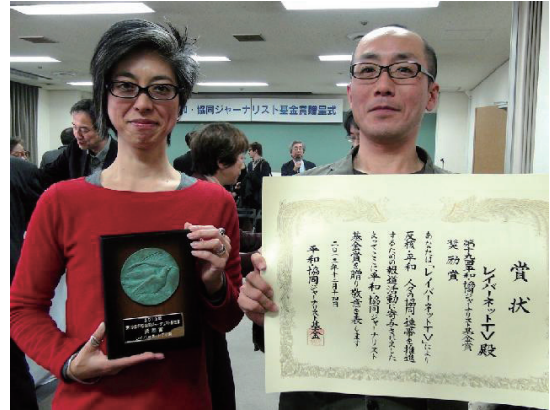 和・協同ジャーナリスト基金賞贈呈式
賞状
レイバーネットTV殿
第十九回平和・協同ジャーナリスト基金賞
奨励賞
あなたは「レイバーネットTV」により
反核・平和 人々の協同・連帯を推進
するための報道活動に寄与されました
よってここに平和・協同ジャーナリスト
基金賞を贈り敬意を表します
平和・協同ジャーナリスト基金